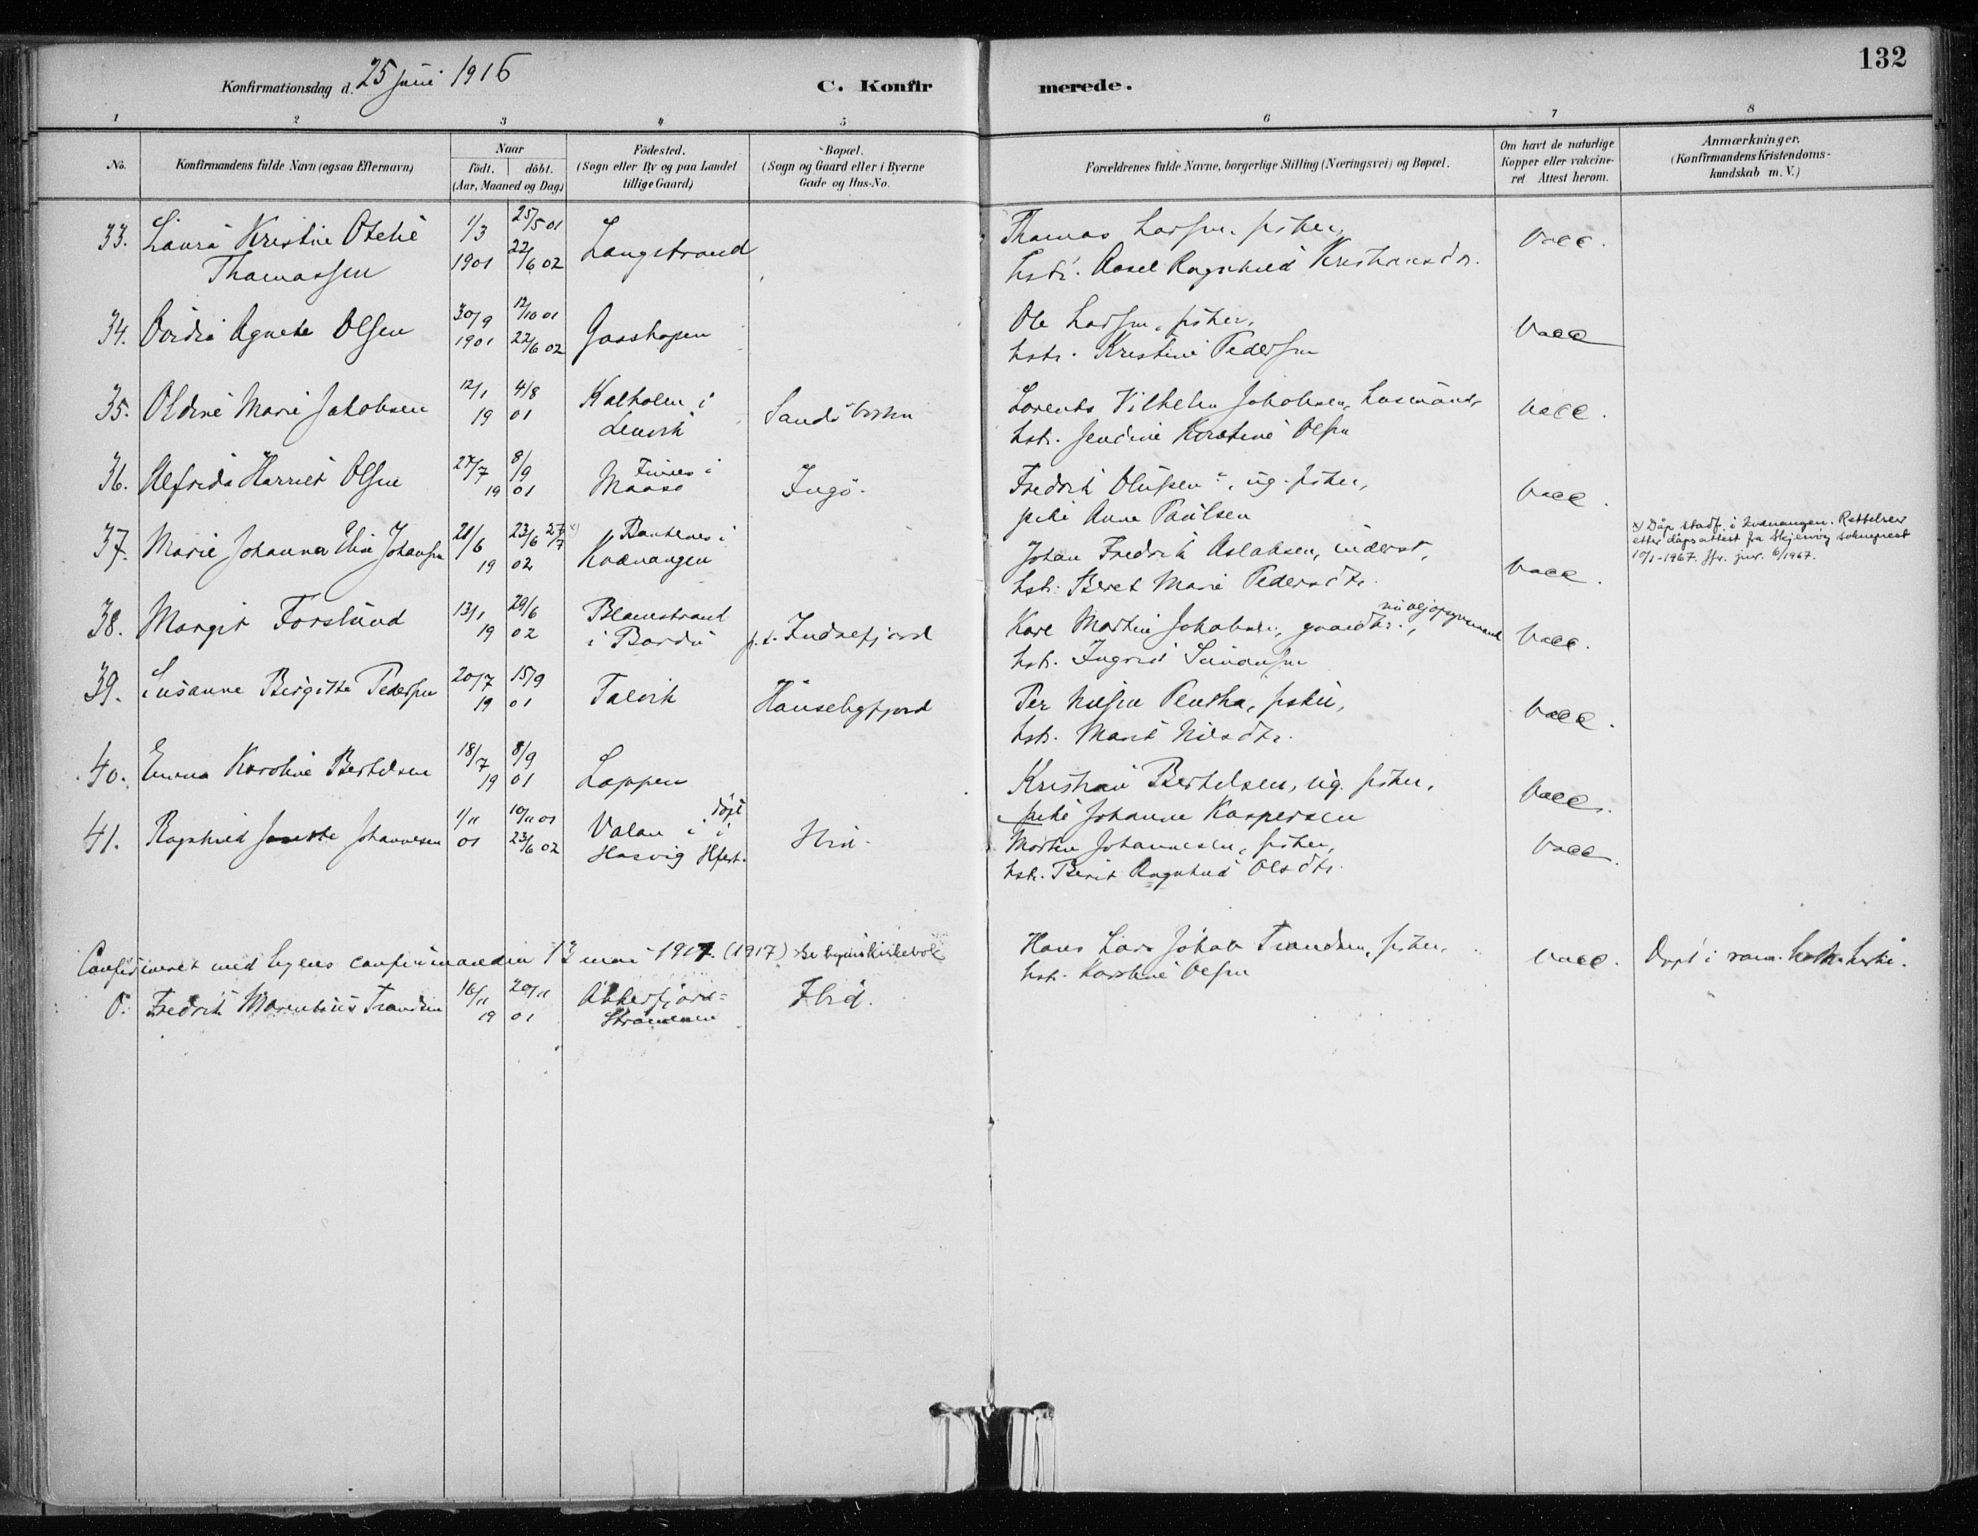 Konfirmationsdag d. 25 juni 1916
C. Konfirmerede.
132
1 2 3 4 5 6 7 8
No.
Konfirmandens fulde Navn (ogsaa Efternavn)
Naar
födt. döbt.
(Aar, Maaned og Dag)
Födested.
(Sogn eller By og paa Landet
tillige Gaard)
Bopæl.
(Sogn og Gaard eller i Byerne
Gade og Hus-No.
Forældrenes fulde Navne, borgerlige Stilling (Næringsvei) og Bopæl.
Om havt de naturlige
Kopper eller vakcine-
ret Attest herom.
Anmærkninger.
(Konfirmandens Kristendoms-
kundskab m. V.)
33. Laura Kristine Otelie 1/3 25/5 01 Langstrand Thomas Larsen, fisker, vacc.
Thomassen 1901 22/6 02 hstr. Ragnhild Kristiansdtr.
34. Agnete Olsen 30/9 12/10 01 Gaashopen Ole Larsen, fisker, vacc
1901 22/6 02 hstr. Kristine Pedersen
35. Oldine Marie Jakobsen 12/1 4/8 Kalholm i Lorents Vilhelm Jakobsen, husmand, vacc.
19 01 Lenvik hstr. Kirstine Olsen
36. Alfrida Harriet Olsen 27/7 8/9 Finnes i Ingö. Fredrik Olufsen, ug. fisker, vacc.
19 01 Maasö pike Anne Paulsen
37. Marie Johanna Elise Johansen 21/6 23/6 27/7 x) i Johan Fredrik Aslaksen, inderst, vacc.
19 02 Kvænangen hstr. Beret Marie Pedersdtr.
x) Dåp stadf. i Kvænangen. Rettelser
etter dåpsattest fra Skjervøy sokneprest
10/1-1967. Jfr. jnr. 6/1967.
38. Margit Forslund 13/1 29/6 p.t. Indrefjord Kare Martin Jakobsen, gaardbr., vacc.
19 02 i Bardu hstr. Ingrid
39. Susanne Birgitte Pedersen 20/7 15/9 Talvik Per Nilsen, fisker, vacc.
19 01 hstr. Marit Nilsdtr.
40. Emma Karoline Bertelsen 18/7 8/9 Loppen Kristian Bertelsen, ug. fisker, vacc.
19 01 pike Johanne Kaspersen
41. Ragnhild Johannesen 1/11 10/11 01 Valan i döpt i Ibid. Morten Johannesen, fisker, vacc.
01 23/6 02 Hasvig Hfest. hstr. Berit Ragnhild Olsdtr.
Confirmeret med byens confirmander 13 mai 1917. (1917) se byens kirkebok
0. Fredrik Marentius Trondsen 16/11 20/11 Akkerfjord= Ibid. Hans Lars Johan Trondsen, fisker, vacc. Döpt i rom. kath. kirke.
19 01 Strömmen hstr. Karstine Olsen